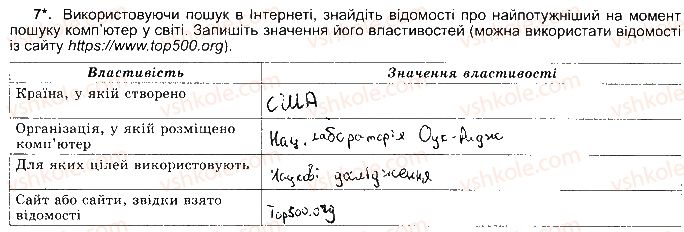 7*. Використовуючи пошук в Інтернеті, знайдіть відомості про найпотужніший на момент
пошуку комп'ютер у світі. Запишіть значення його властивостей (можна використати відомості
із сайту https://www.top500.org).
Властивість Значення властивості
Країна, у якій створено США
Організація, у якій розміщено
комп'ютер Нац. лабораторія Оук-Рідж
Для яких цілей використовують Наукові дослідження
Сайт або сайти, звідки взято
відомості Top500.org
vshkole.com